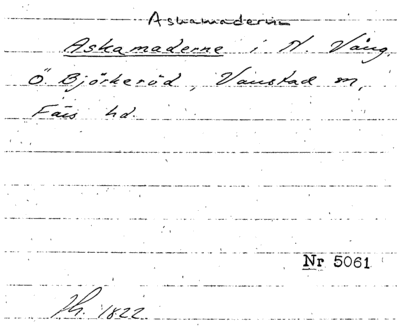 Askamaderna
Askamaderne i N. Vång.
Ö. Björkeröd, Vanstad sn,
Färs hd.
Nr 5061
1822